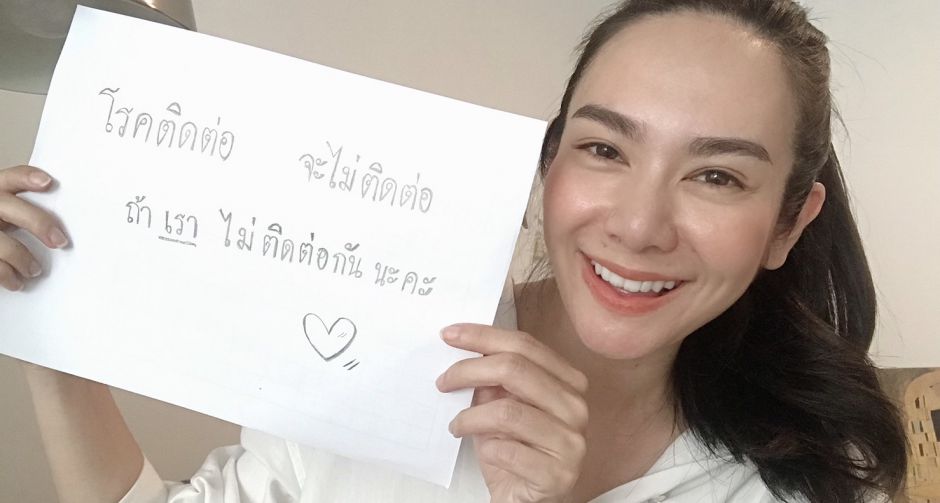 โรคติดต่อ จะไม่ติดต่อ
ถ้า เรา ไม่ติดต่อกัน นะคะ